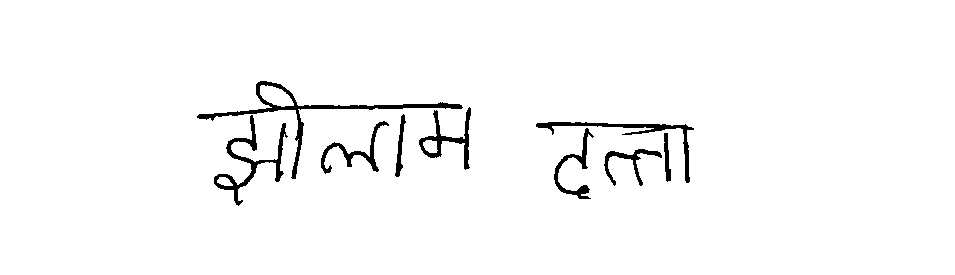 झीलाम दत्ता